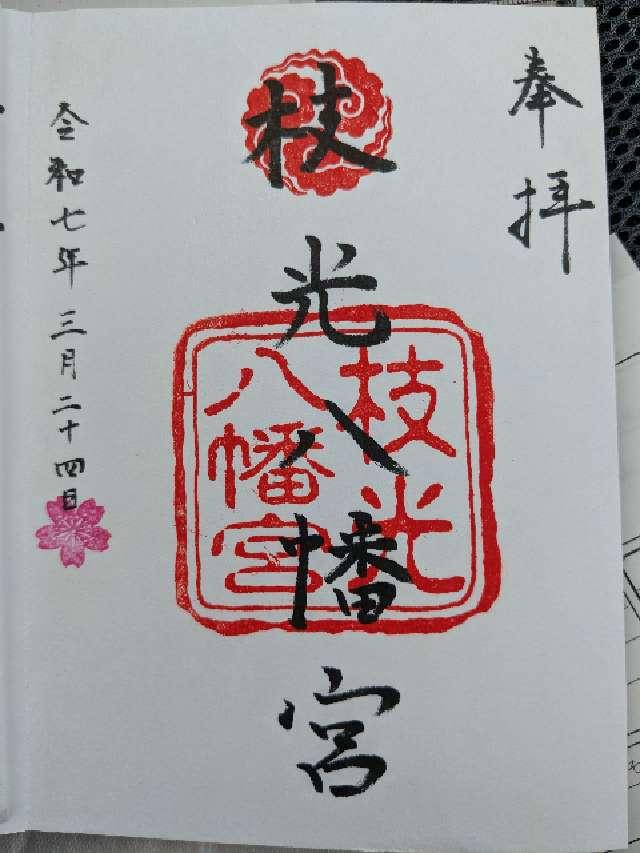 奉拝
枝光八幡宮
枝光
八幡宮
令和七年三月二十四日